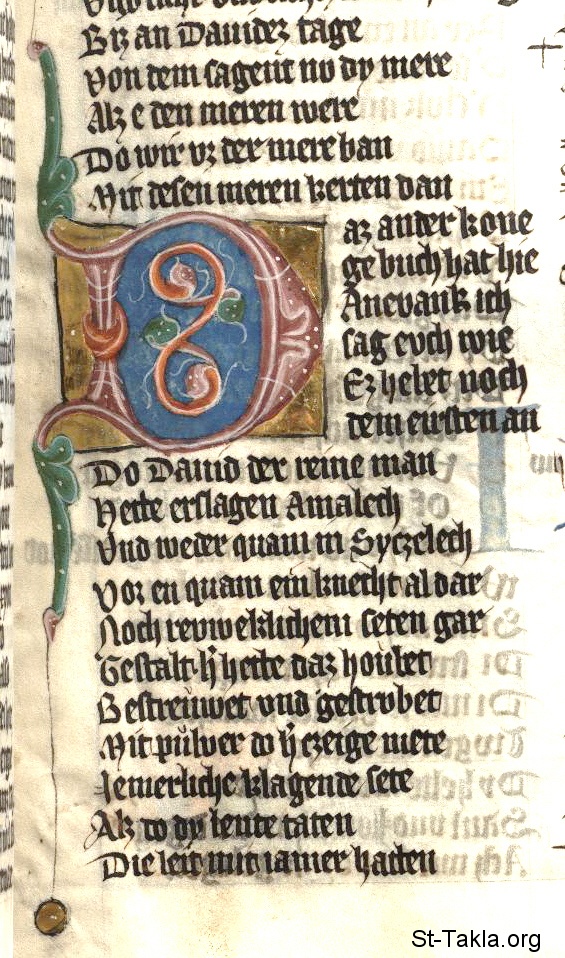 Biz an Dauidez tage
Von dem sagent no dy mere
Alz e den meren were
Do wir vz der mere ban
Mit desen meren kerten dan
Daz ander kone
ge buch hat hie
Anevank ich
sag evch wie
Ez helet noch
dem eirsten an
Do Dauid der reine man
Hette erslagen Amalech
Vnd weder quam in Syczelech
Vor en quam ein knecht al dar
Noch revweklichem seten gar
Gestalt h̾ hette daz houbet
Bestreuwet vnd gestrobet
Mit pulver do h̾ czeige mete
Iemerliche klagende sete
Alz do dy leute taten
Die leit mit iamer hatten
St-Takla.org